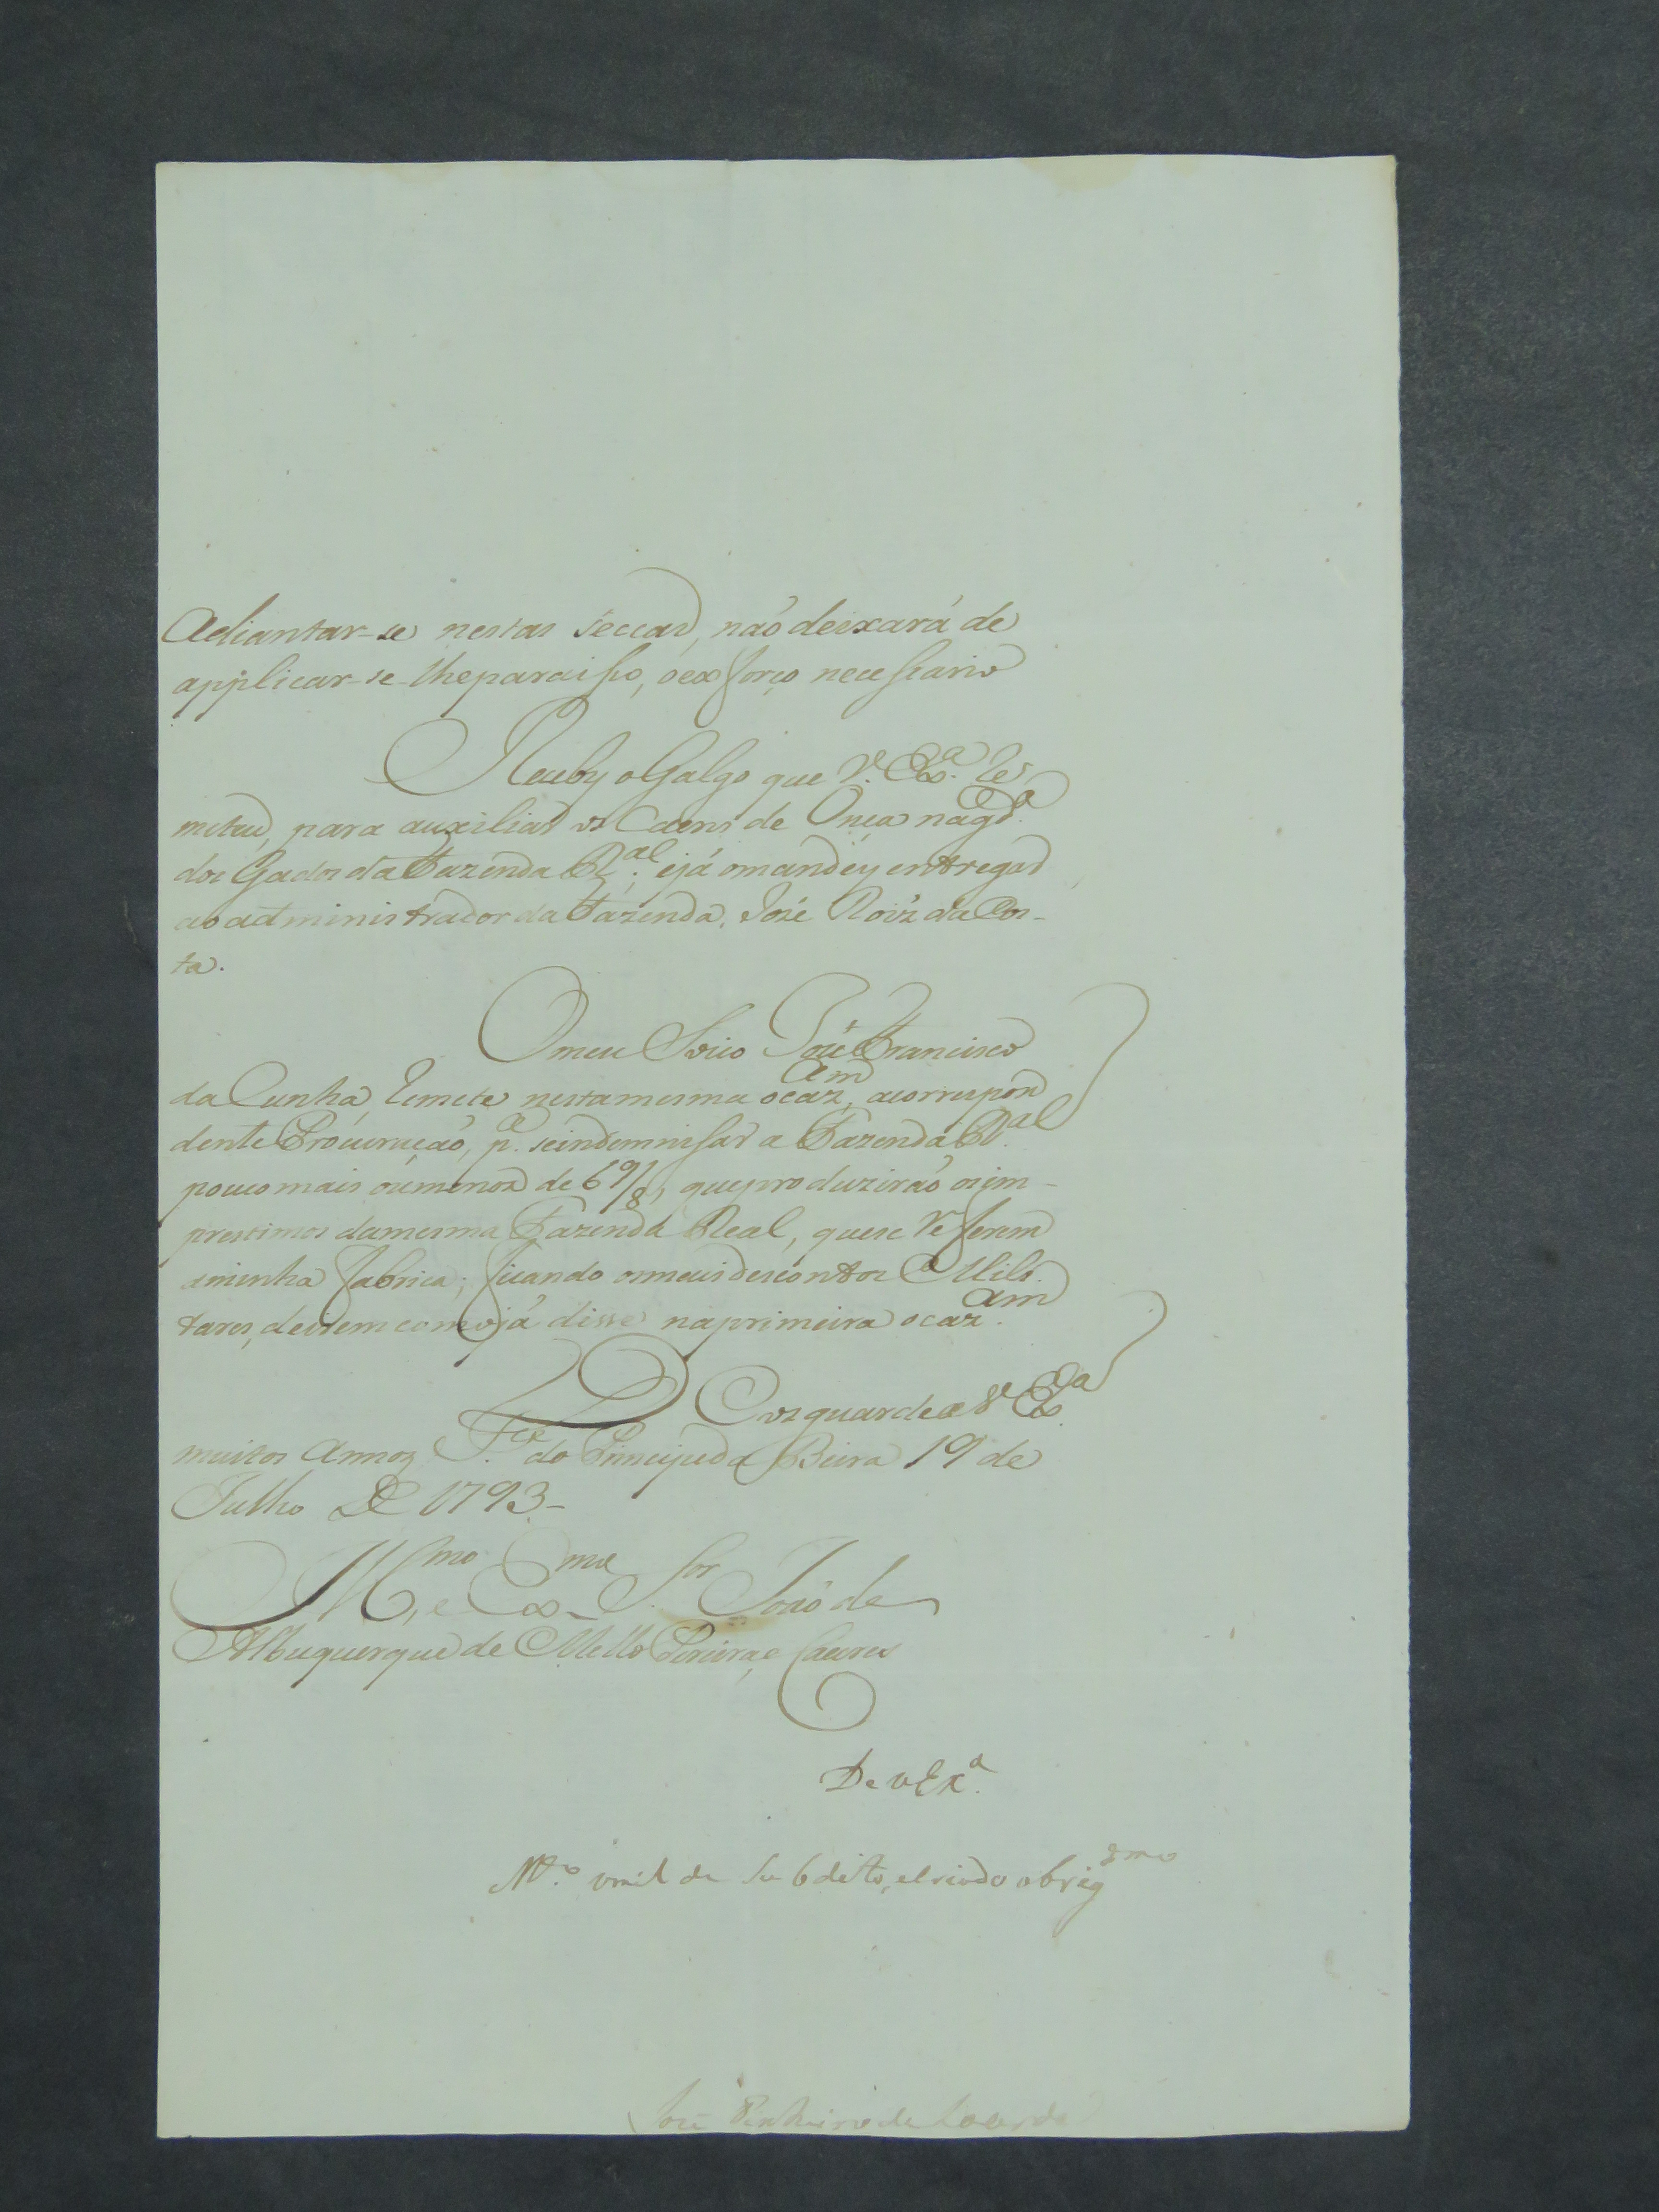 Adiantar-se nestas seccas, naõ deixará de
applicar-se-lhe para isso, o exforço necessario
Recéby o Galgo que V. Exª. re-
meteu, para auxiliar os Caens de Onça na gdª.
dos Gados da Fazenda Rªˡ; e já o mandéy entregar
ao administrador da Fazenda, José Roiz da Cos-
ta.
O meu Socio José Francisco
da Cunha, remete nesta mesma ocazᵃᵐ, a correspon
dente Procuraçaõ, pª. se indemnisar a Fazenda Rªˡ
pouco mais ou menos de 69/8, que produziraõ os im-
prestimos da mesma Fazenda Real, que se referem
a minha fabrica; ficando os meus descontos Mili-
tares, de irem como já disse na primeira ocazᵃᵐ.
D Eos guarde a V Exª
muitos Annos Fᵗᵉ. do Principe da Beira 19 de
Julho De 1793-
Illᵐᵒ, e Exᵐᵒ Sʳ. Joaõ de
Albuquerque de Mello Pereira, e Caceres
De V Exª.
Mᵗᵒ. umil de subdito, e criado obrigᵐᵒ
José Pinheiro de Lacerda